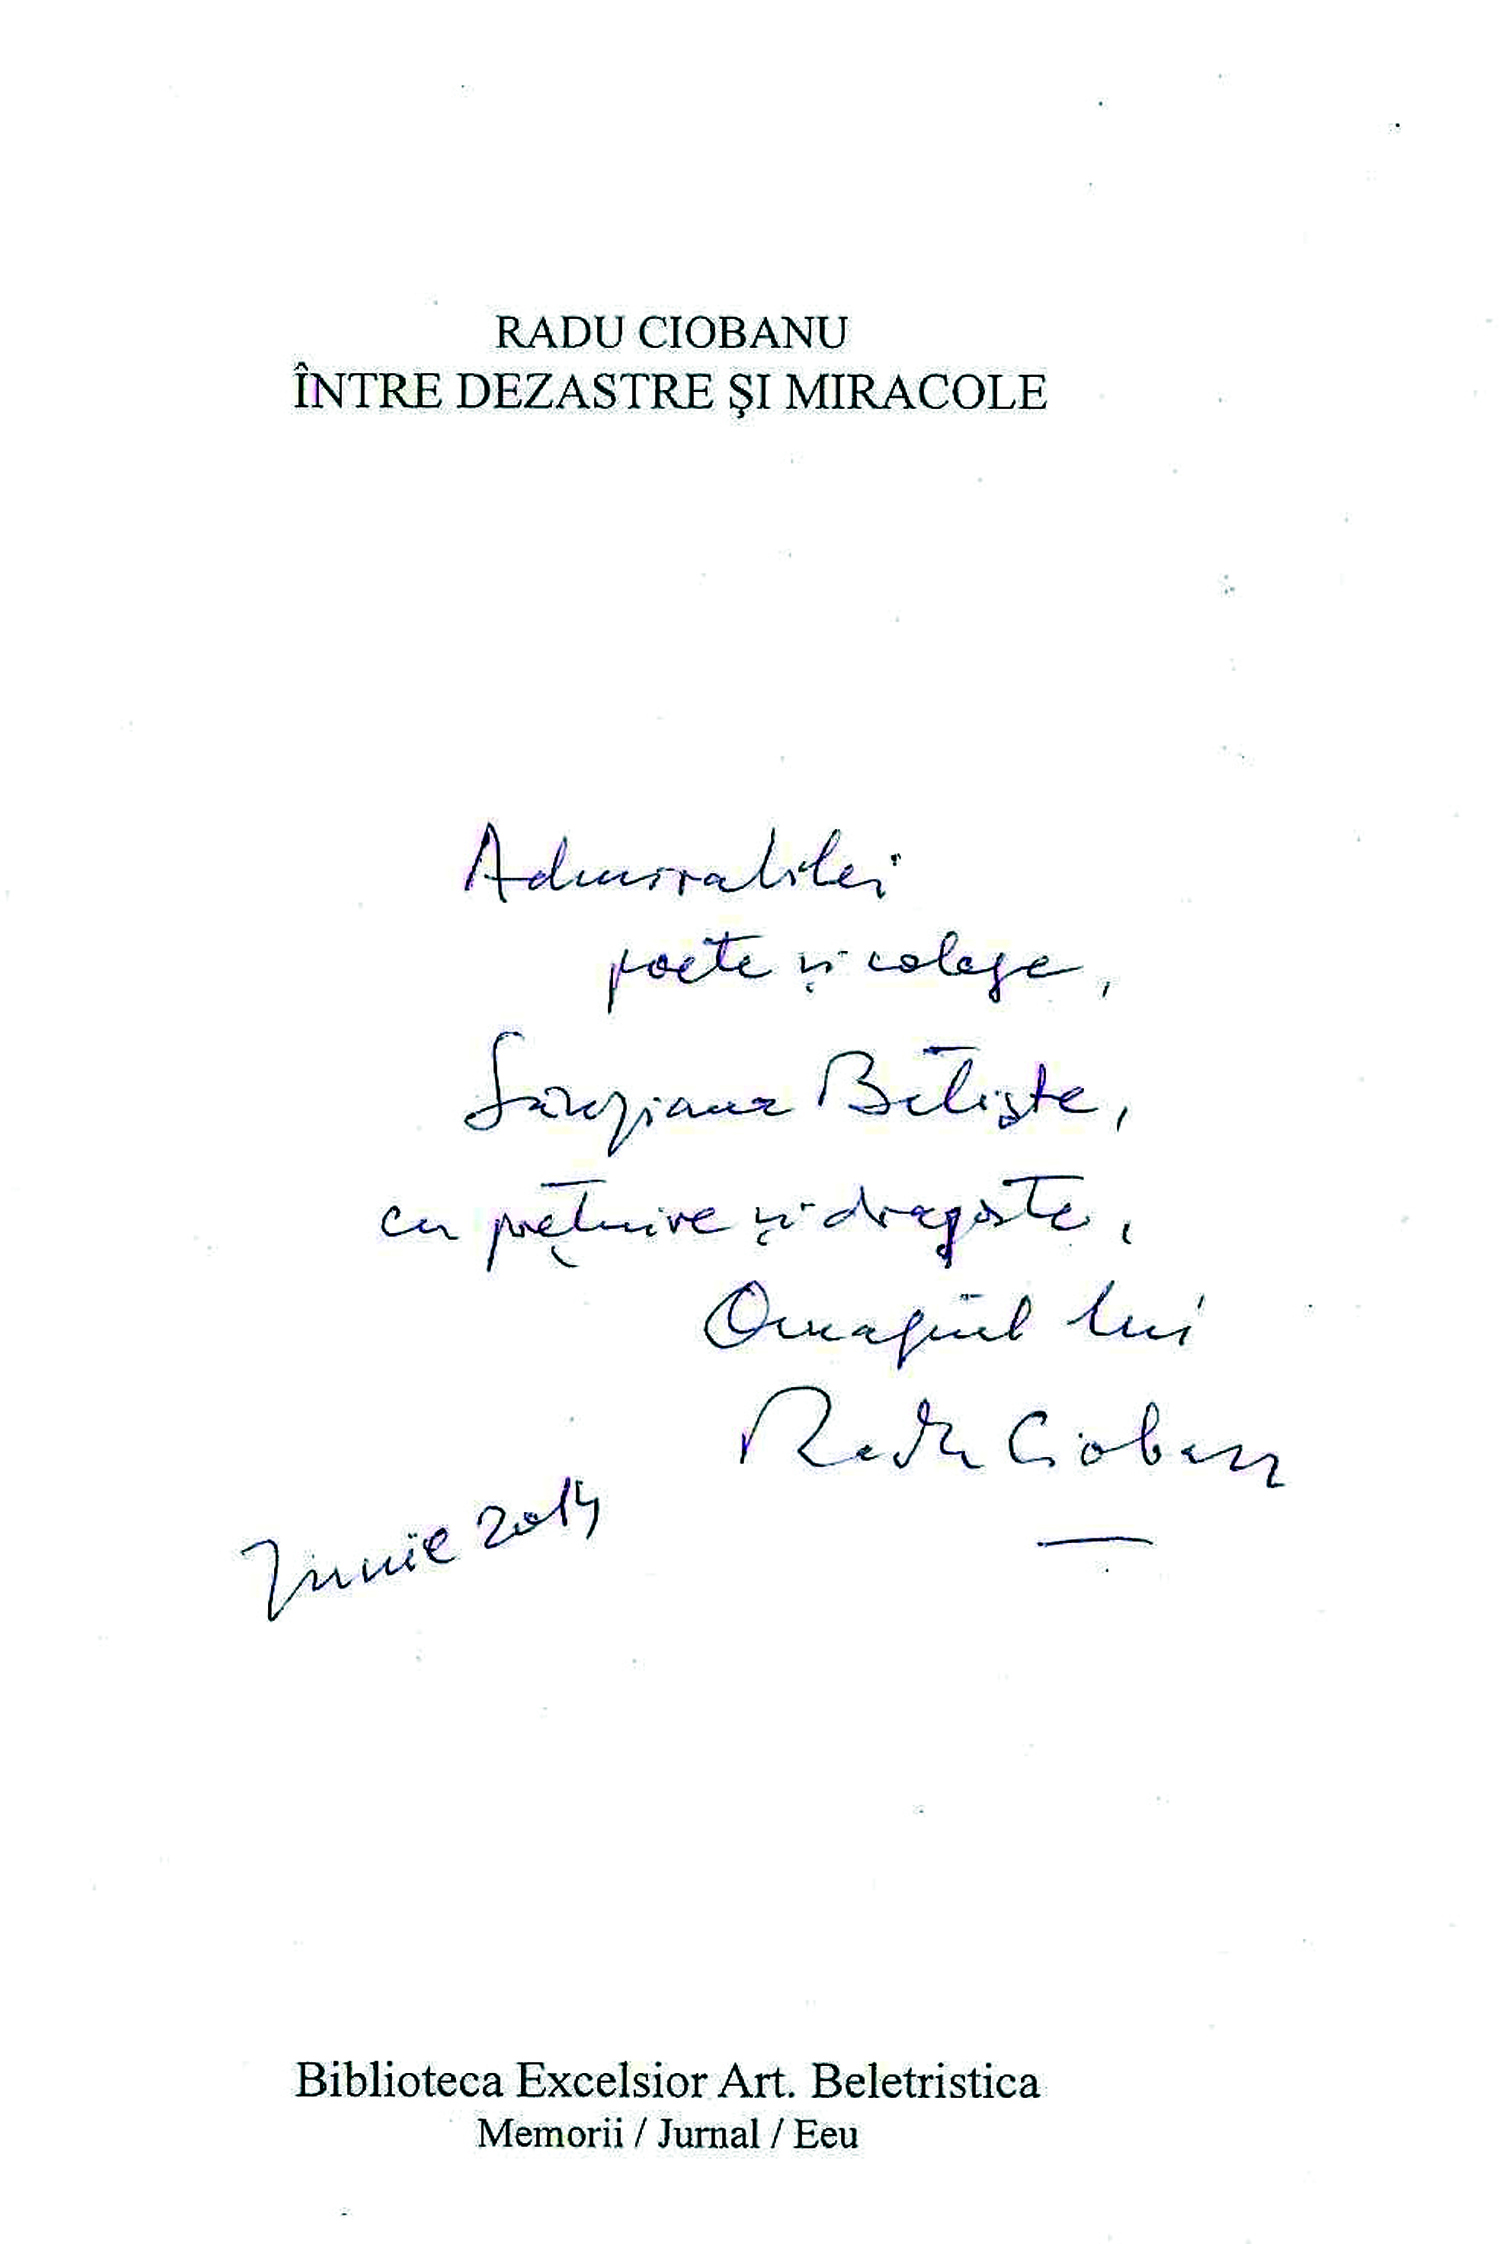 RADU CIOBANU
ÎNTRE DEZASTRE ŞI MIRACOLE
Admirabilei
poete și colege,
Sânziana Batiște,
cu prețuire și dragoste,
Omagiul lui
Radu Ciobanu
Iunie 2014
Biblioteca Excelsior Art. Beletristica
Memorii / Jurnal / Eeu